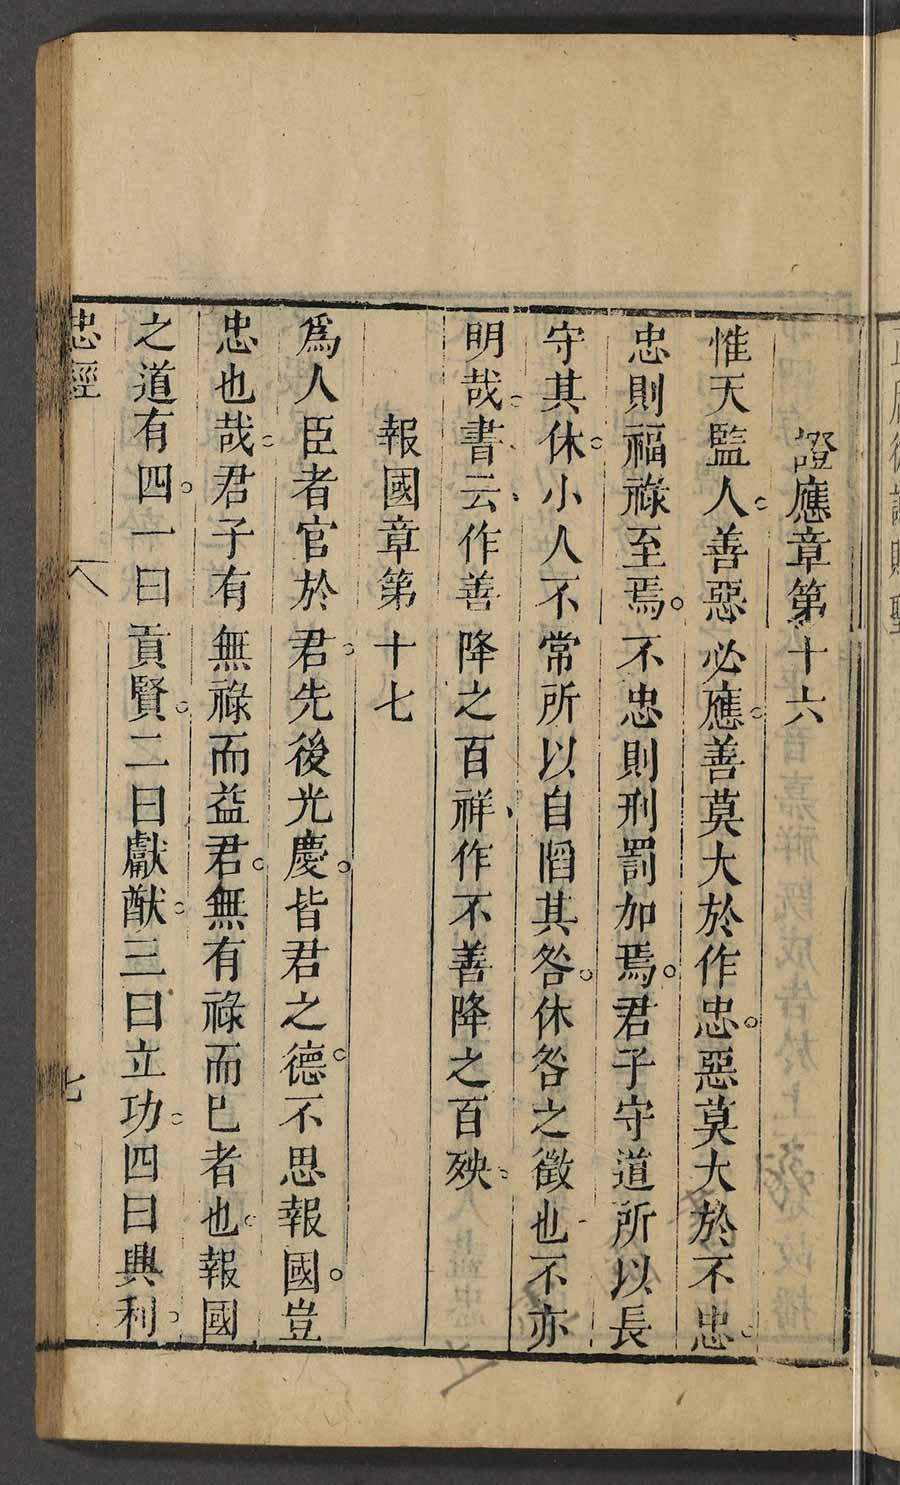 證應章第十六
惟天監人。善惡必應。善莫大於作忠。惡莫大於不忠。
忠則福祿至焉。不忠則刑罰加焉。君子守道所以長
守其休。小人不常所以自罹其咎。休咎之徵也不亦
明哉。書云、作善降之百祥、作不善降之百殃。
報國章第十七
爲人臣者官於君。先後光慶。皆君之德。不思報國。豈
忠也哉。君子有無祿而益君。無有祿而巳者也。報國
之道有四。一曰貢賢。二曰獻猷。三曰立功。四曰興利。
忠經
七